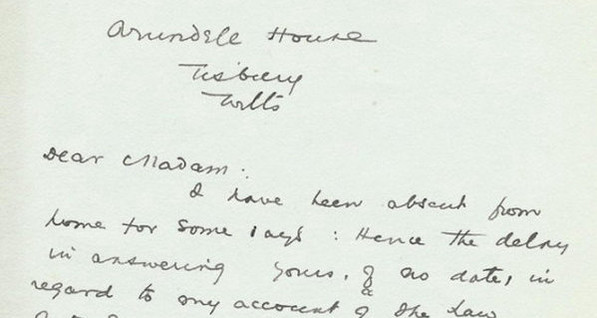 Arundele House
Tisbury
Wilts
Dear Madam:
I have been absent from
home for some days : Hence the delay
in answering yours, of no date, in
regard to my account of the Law